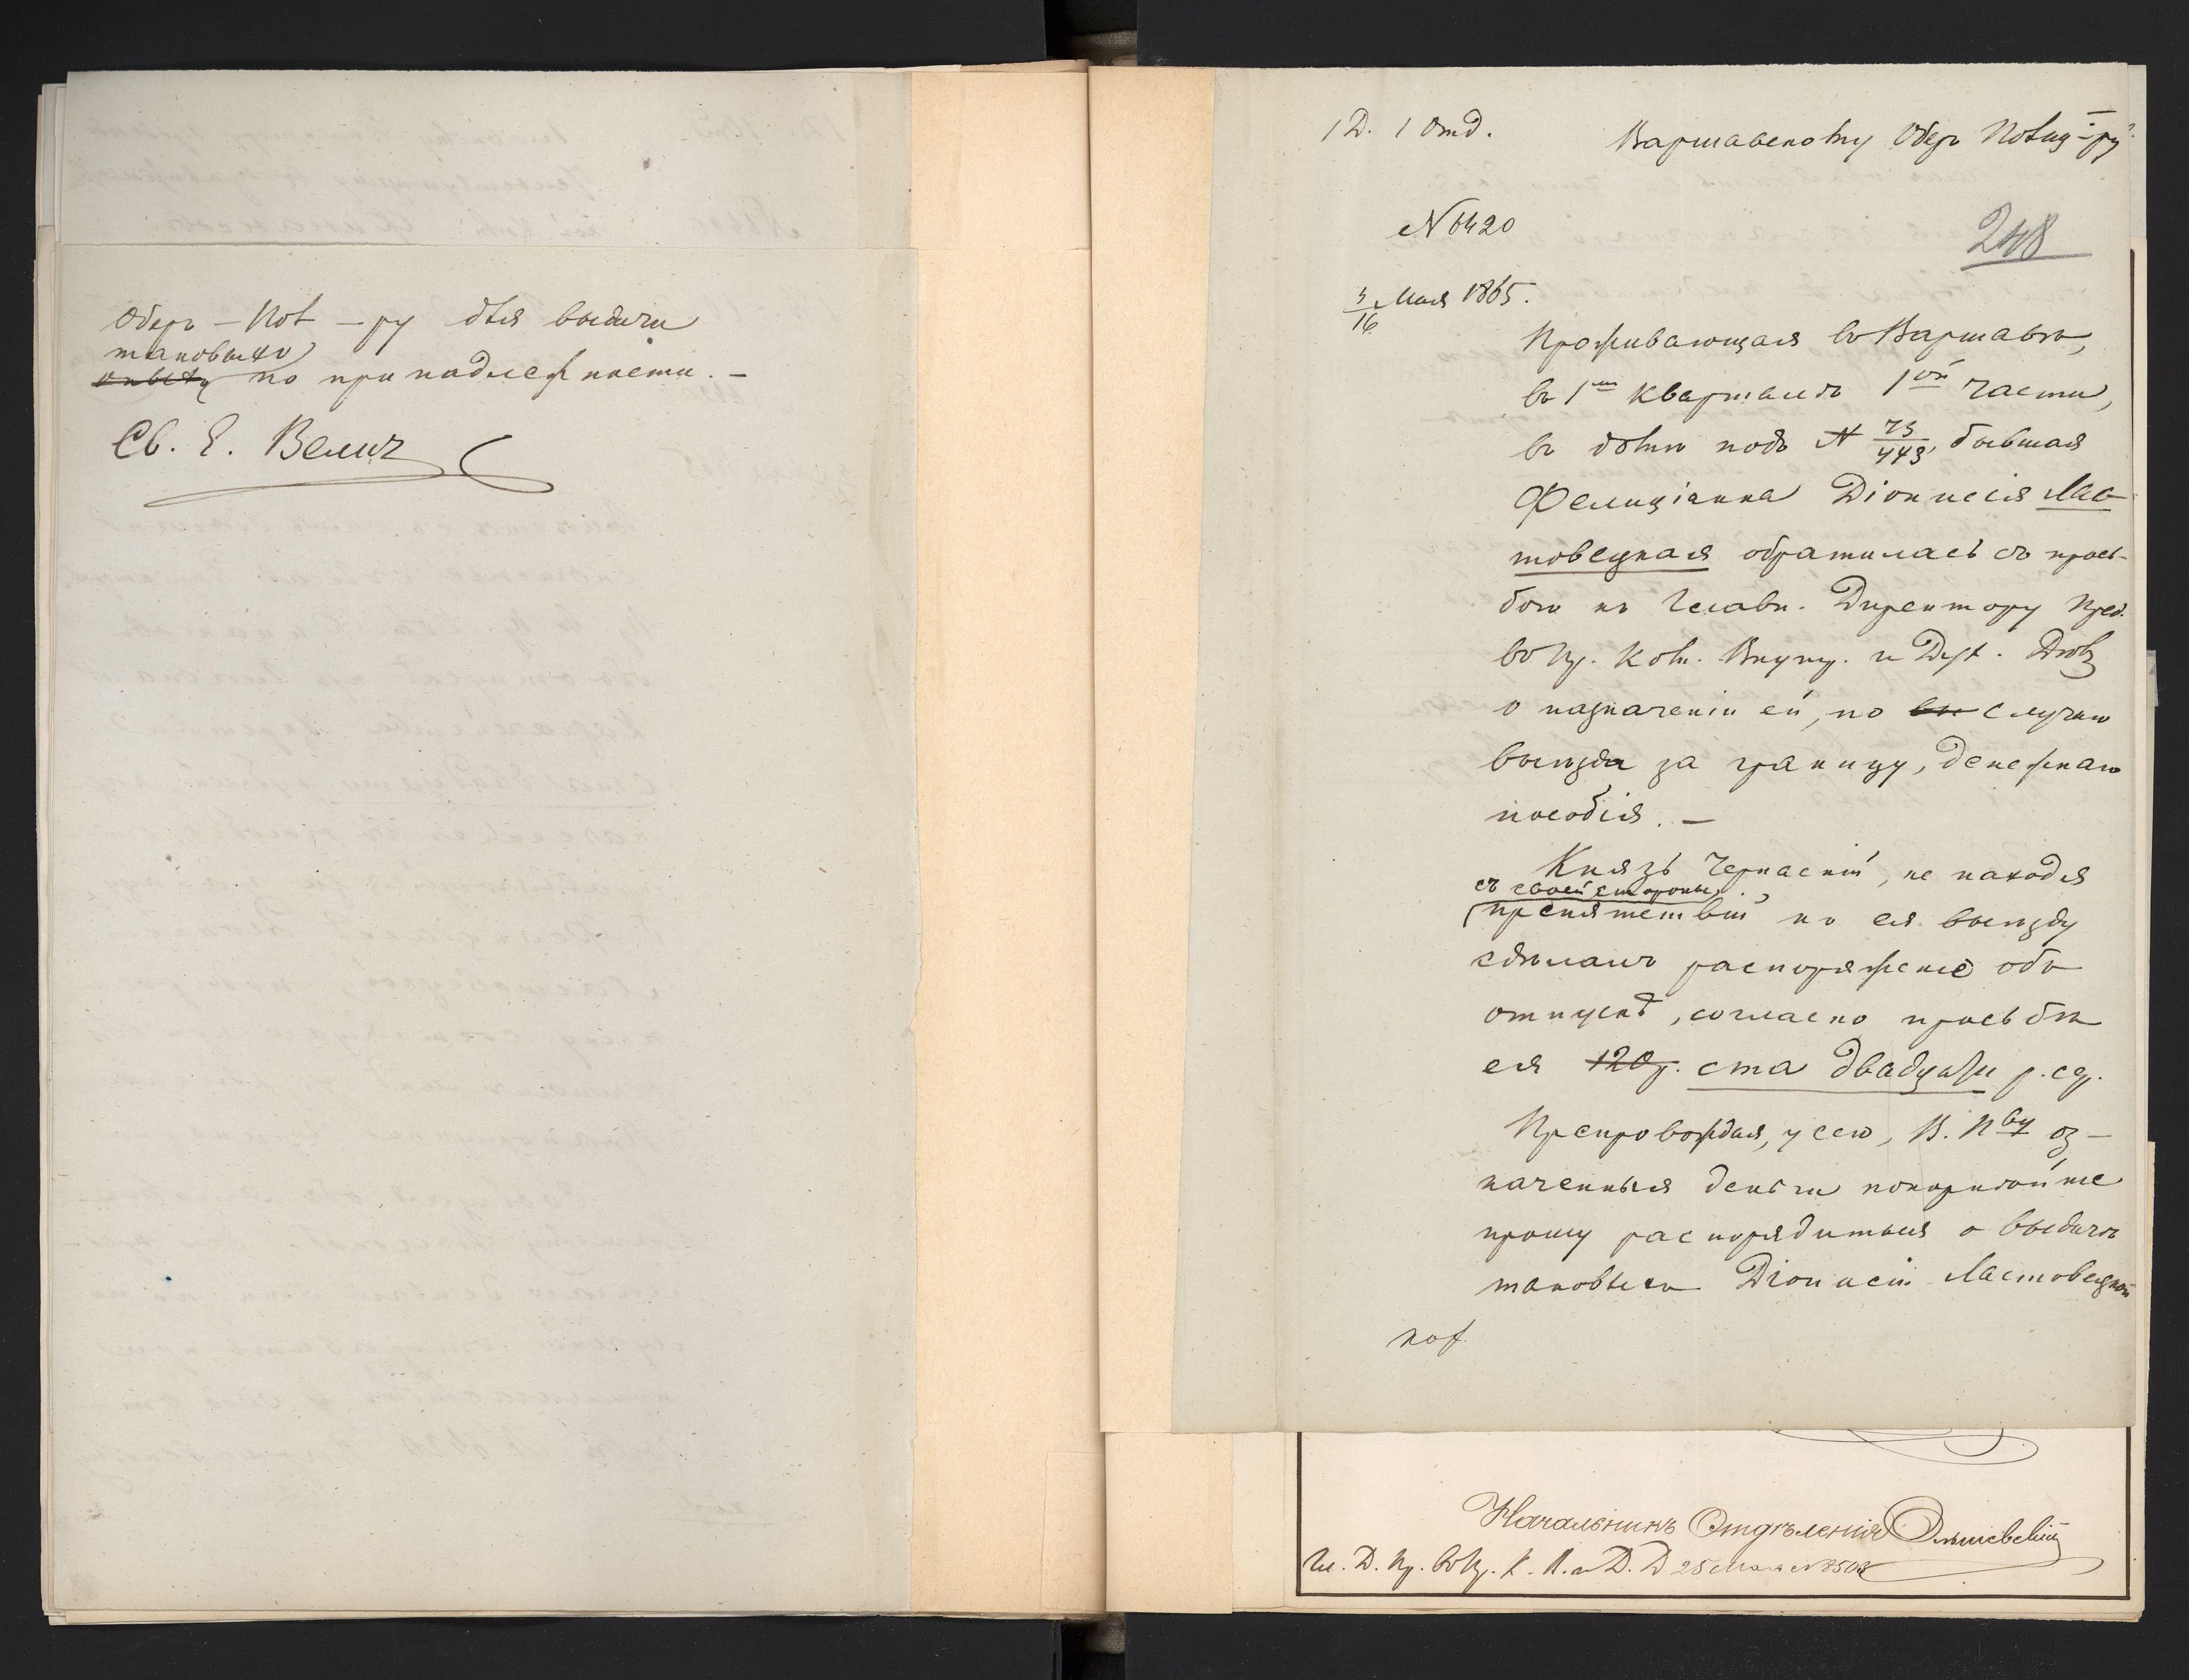 Оберъ-Пол-ру для выдачи
таковыхъ
по принадлежности. —
Св. Е. Велич
1 Д. 1 Отд.
Варшавскому Оберъ Полиц-ру
248
N 6420
4/16 Мая 1865.
Проживающая въ Варшавѣ,
въ 1мъ кварталѣ 1ой части,
въ домѣ подъ N 73/443, бывшая
Фелиціанка Діонисія Лас-
товецкая обратилась съ прось-
бою къ Главн. Директору Пред.
въ Пр. Ком. Внутр. и Дух. Дѣлъ
о назначеніи ей, по случаю
выѣзда за границу, денежнаго
пособія. —
Князь Черкаскій, не находя
съ своей стороны
препятствій къ ея выѣзду
сдѣлалъ распоряженіе объ
отпускѣ, согласно просьбѣ
ея 120 р. ста двадцати р. ср.
Препровождая, у сего, В. П-ву оз-
наченныя деньги покорнѣйше
прошу распорядиться о выдачѣ
таковыхъ Діонисіи Ластовецкой
Начальникъ Отдѣленія
Гл. Д. Пр. въ Пр. К. В. и Д. Д 25 Мая N 8508